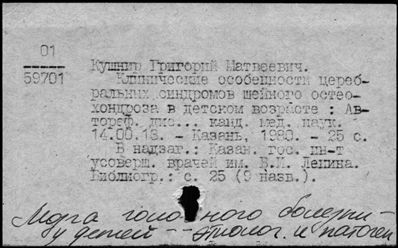 01
59701
Кушнир Григорий Матвеевич.
Клинические особенности цереб-
ральных синдромов шейного остео-
хондроза в детском возрасте : Ав-
тореф. дис... канд. мед. наук. -
14.00.13. - Казань, 1980. - 25 с.
В надзаг.: Казан. гос. ин-т
усоверш. врачей им. В.И. Ленина.
Библиогр.: с. 25 (9 назв.).
Мозга головного болезни -
у детей -- этиолог. и патоген